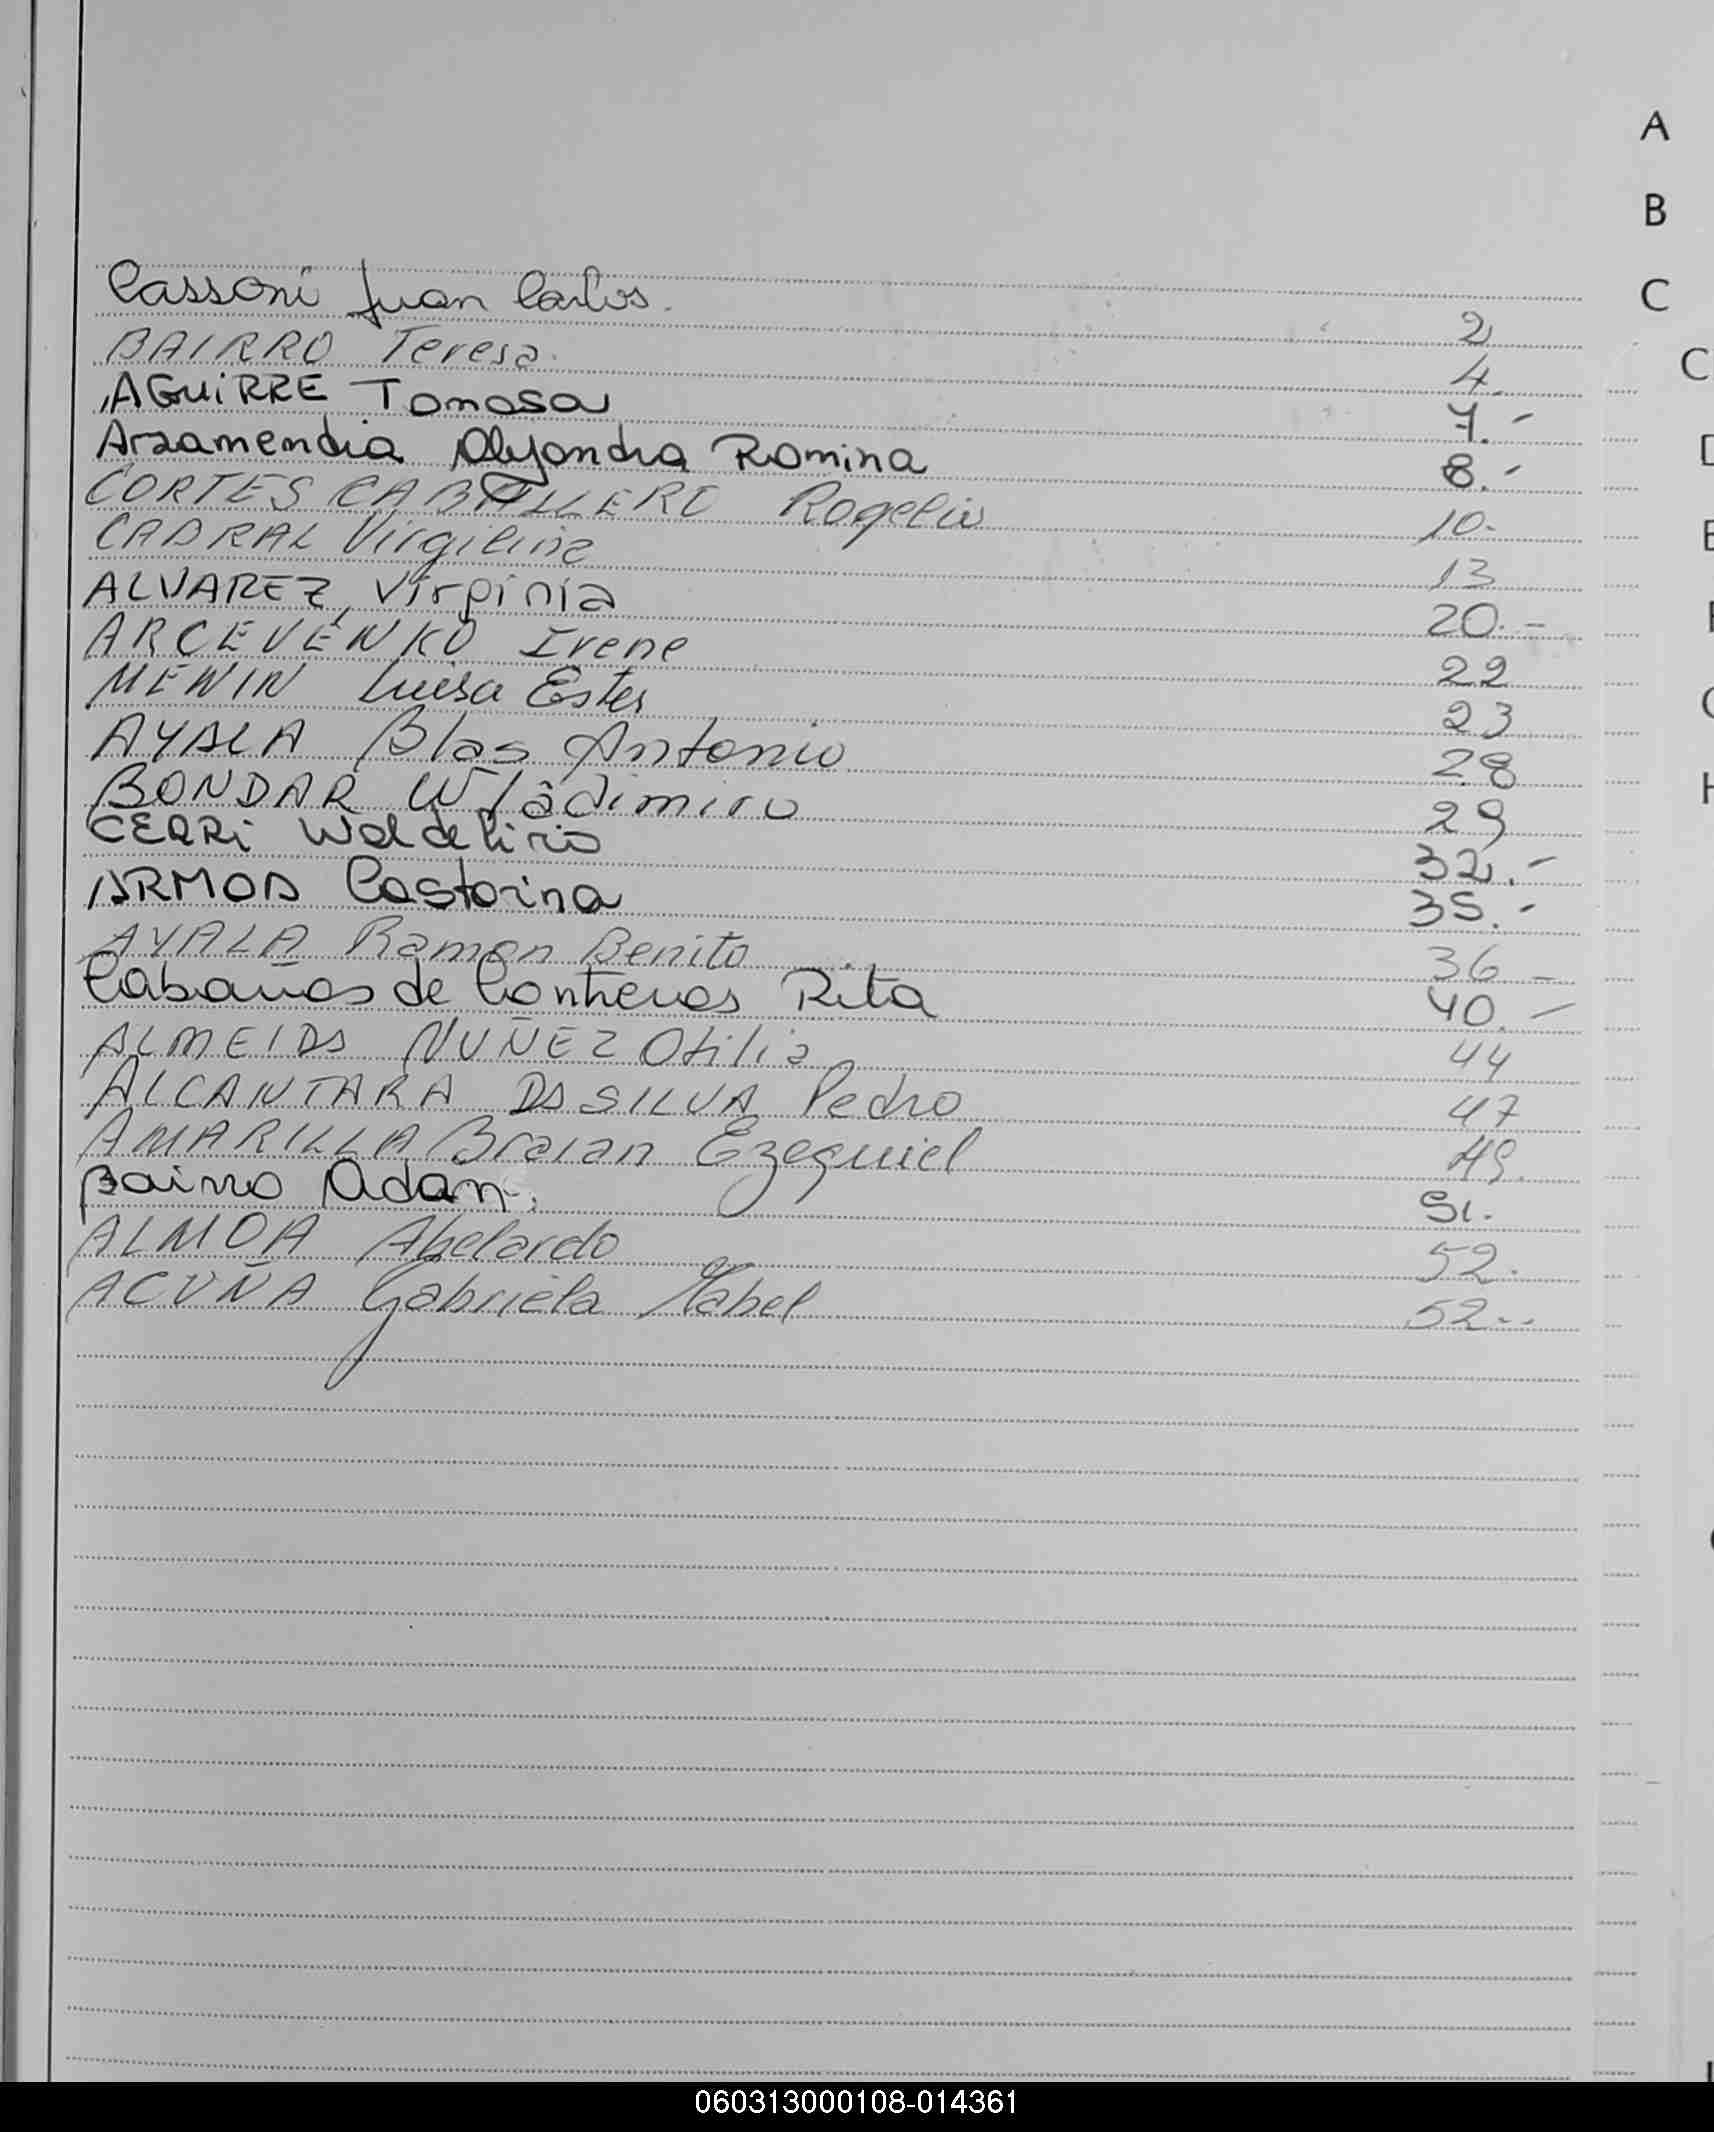 A
B
C
Cassoni Juan Carlos. 2
BAIRRO Teresa. 4.
AGUiRRE Tomasa 7.-
Arzamendia Alejandra Romina 8.-
CORTES CABALLERO Rogelio 10.
CABRAL Virgilina 13
ALVAREZ, Virginia 20.-
ARCEVENKO Irene 22
MENIN Luisa Ester 23
AYALA Blas Antonio 28
BONDAR Wladimiro 29
CEARi Waldeliria 32.-
ARMOA Castorina 35.-
AYALA Ramon Benito 36-
Cabañas de Contreras Rita 40.-
ALMEIDA NUÑEZ Otilia 44
ALCANTARA DA SILVA Pedro 47
AMARILLA Braian Ezequiel 49.
Bairro Adan. 51.
ALMOA Abelardo 52.
ACUÑA Gabriela Mabel 52..
060313000108-014361